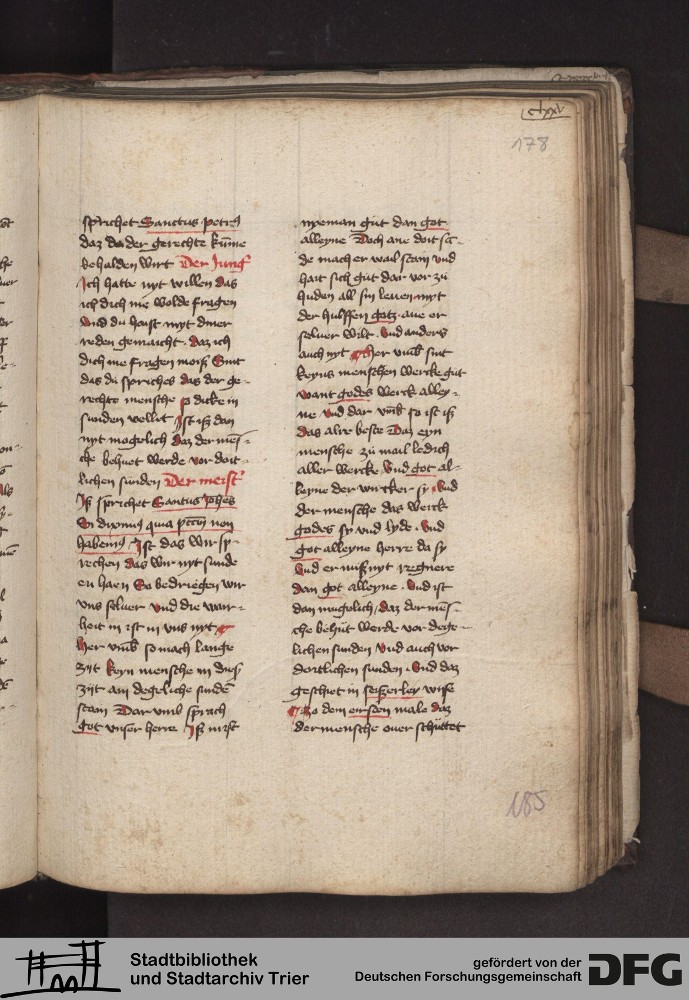 clxxv
178
sprichet Sanctus petrꝰ
daz da der gerechte kume
behalden wirt Der Jungˀ
Ich hatte nyt willen das
ich dich nie wolde fragen
Vnd du haist myt diner
reden gemaicht. daz ich
dich me fragen moiß Sint
das du spriches das der ge-
rechte mensche so dicke in
sunden vellit Jst iß dan
nyt mogelich daz der men̄-
sche behuet werde vor doit-
lichen sunden Der meistˀ
Jß sprichet Santus Johēs
Si dixim9 quia pctm̄ non
habem9 Jst das wir sp-
rechen das wir nyt sunde
en haen So bedriegen wir
vns seluer vnd die wair-
heit in ist in vns nyt
Her vmb so mach lange
zijt keyn mensche in disß
zijt ain degeliche sunde
stain Dar vmb sprach
got vnser herre Jß in ist
nyeman gut dan got
alleyne Doch ane doit su̅-
de mach er wail stain vnd
hait sich gut dar vor zu
huden all sin leuen myt
der hulffen gotz. aue er
seluer wilt. Vnd anders
auch nyt Her vmb sint
keyns menschen wercke gut
want godes werck alley-
ne Vnd dar vmb so ist iß
das alre beste Daz eyn
mensche zu mail ledich
aller wercke Vnd got al-
leyne der wircker sy Vnd
der mensche das werck
godes sy vnd lyde. Vnd
got alleyne herre da sy
Vnd er niß nyt regniere
dan got alleyne. Vnd ist
dan mugelich, daz der men̄-
sche behut werde vor dege-
lichen sunden Vnd auch vor
doitlichen sunden. Vnd daz
geschiet in seißerley wise
Zo dem eirsten male daz
der mensche ouer schuttet
185
Stadtbibliothek
und Stadtarchiv Trier
gefördert von der
Deutschen Forschungsgemeinschaft
DFG